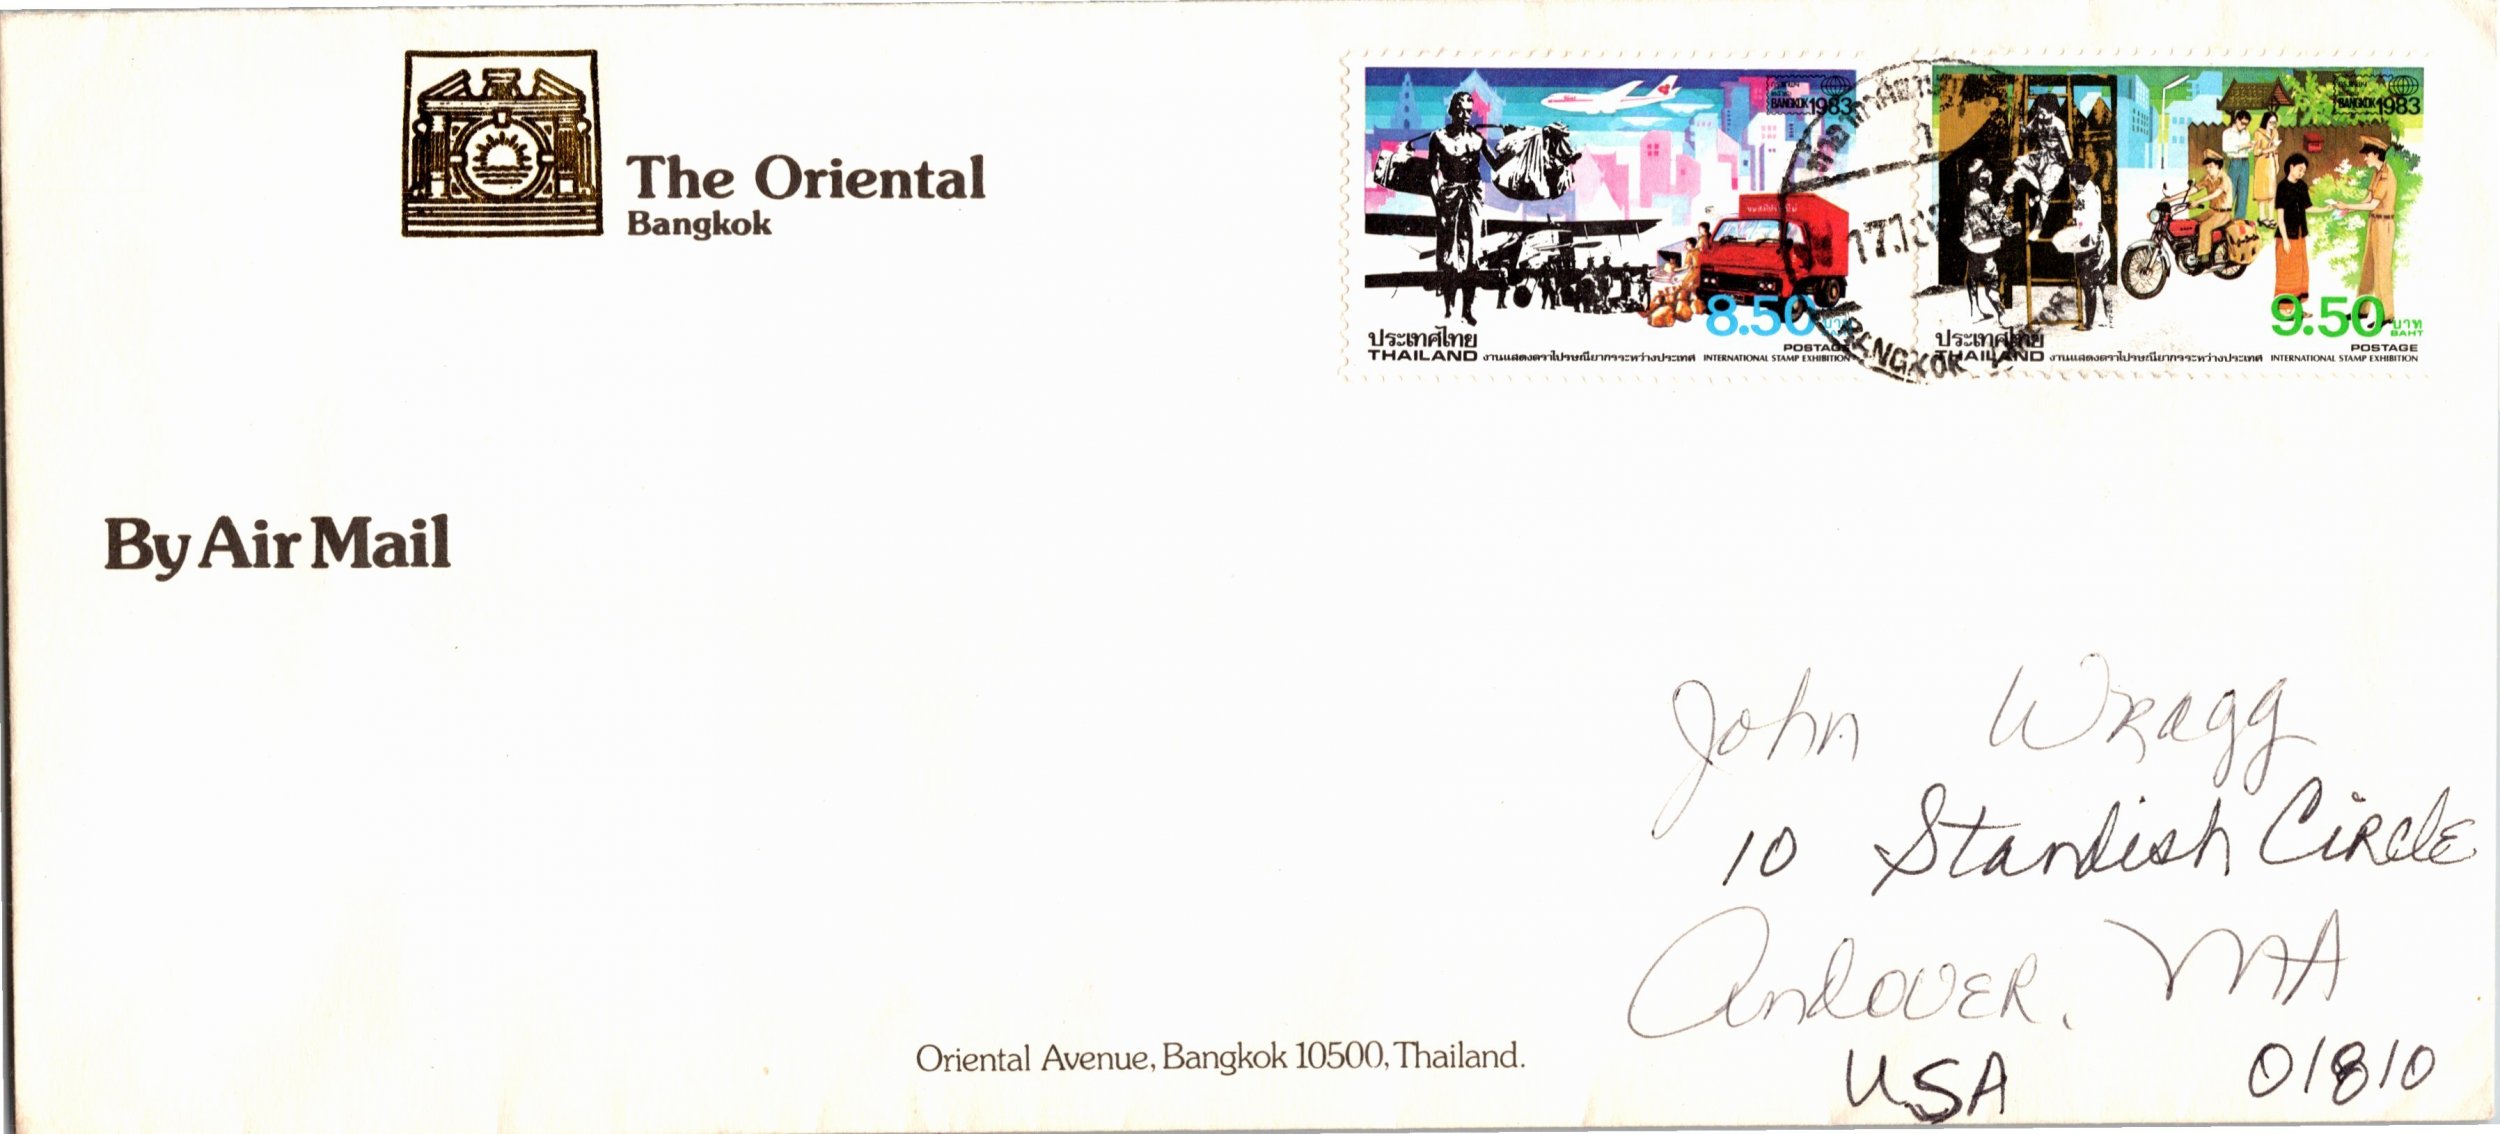 The Oriental
Bangkok
By Air Mail
กรุงเทพฯ
BANGKOK 1983
8.50
บาท
ประเทศไทย
THAILAND
งานแสดงตราไปรษณียากรระหว่างประเทศ
POSTAGE
INTERNATIONAL STAMP EXHIBITION
BANGKOK 1983
9.50
บาท
BAHT
ประเทศไทย
THAILAND
งานแสดงตราไปรษณียากรระหว่างประเทศ
POSTAGE
INTERNATIONAL STAMP EXHIBITION
BANGKOK
John Wragg
10 Standish Circle
Andover, MA
USA 01810
Oriental Avenue, Bangkok 10500, Thailand.